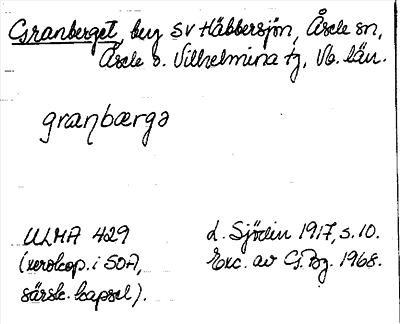 Granberget, by SV Häbbersjön, Åsele sn,
Åsele o. Vilhelmina tg, Vb. län.
granbærgə
ULMA 429
(xerokop. i SOA,
särsk. kapsel).
d. Sjödin 1917, s. 10.
Exc. av G. Bg. 1968.